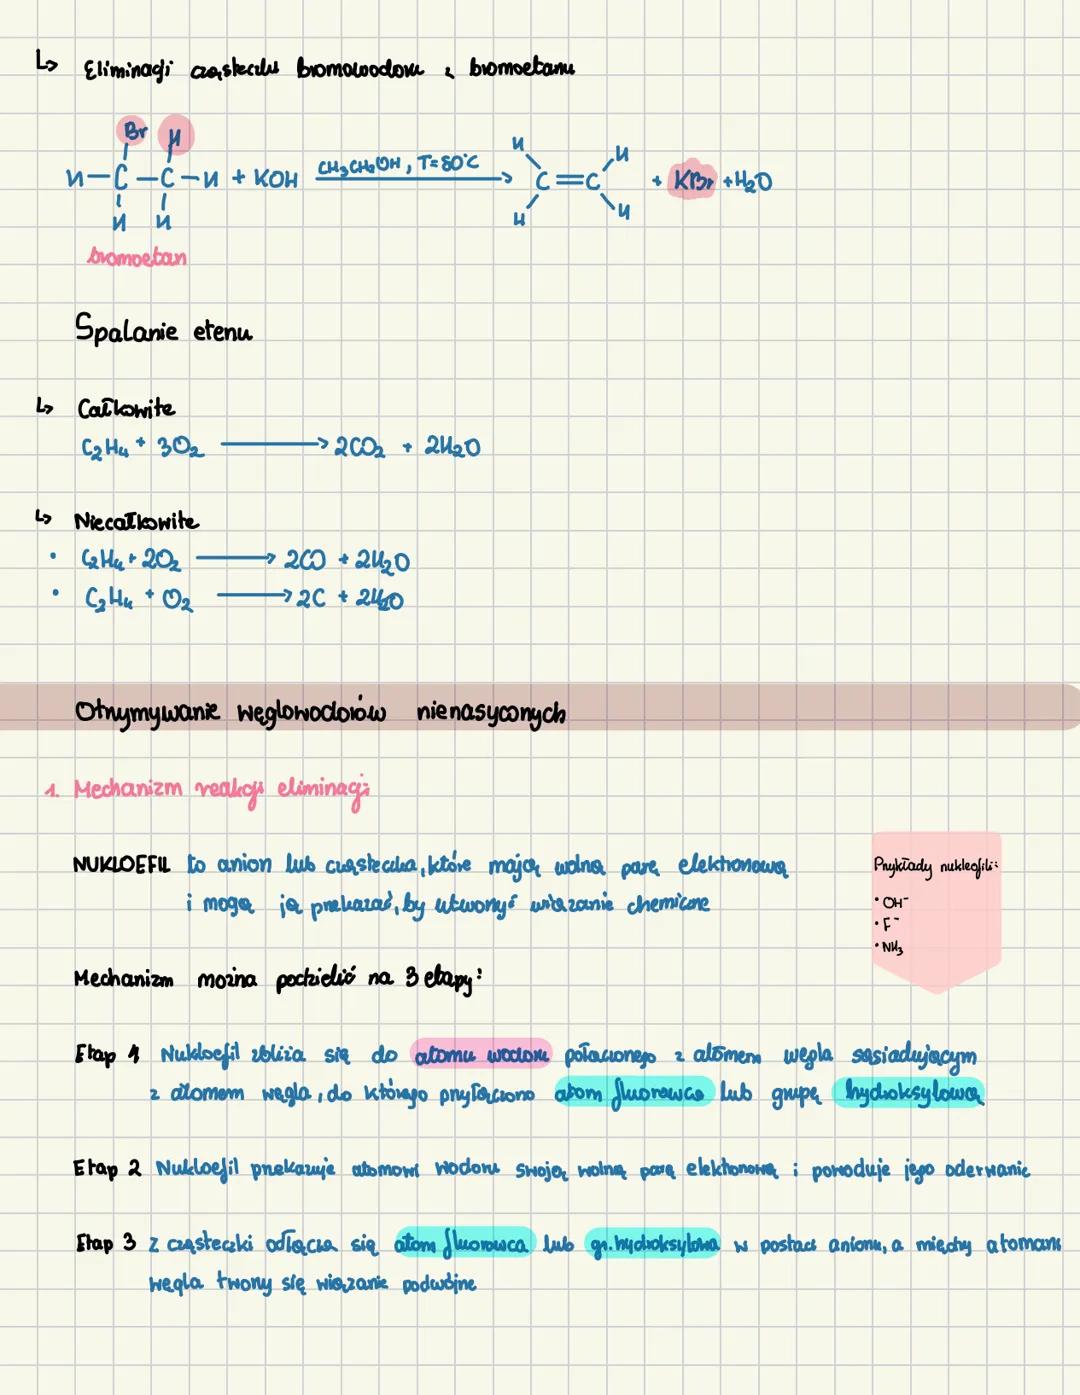 ↳ Eliminacji cząsteczki bromowodoru z bromoetanu
Br H
H–C–C–H + KOH CH₃CH₂OH, T=80°C → H H C=C H H + KBr + H₂O
H H
bromoetan
Spalanie etenu
↳ Całkowite
C₂H₄ + 3O₂ → 2CO₂ + 2H₂O
↳ Niecałkowite
• C₂H₄ + 2O₂ → 2CO + 2H₂O
• C₂H₄ + O₂ → 2C + 2H₂O
Otrzymywanie węglowodorów nienasyconych
1. Mechanizm reakcji eliminacji
NUKLOEFIL to anion lub cząsteczka, które mają wolną parę elektronową
i mogą ją przekazać, by utworzyć wiązanie chemiczne
Przykłady nukleofili:
• OH⁻
• F⁻
• NH₃
Mechanizm można podzielić na 3 etapy:
Etap 1 Nukloefil zbliża się do atomu wodoru połączonego z atomem węgla sąsiadującym
z atomem węgla, do którego przyłączono atom fluorowca lub grupę hydroksylową
Etap 2 Nukloefil przekazuje atomowi wodoru swoją wolną parę elektronową i powoduje jego oderwanie
Etap 3 Z cząsteczki odłącza się atom fluorowca lub gr. hydroksylowa w postaci anionu, a między atomami
węgla tworzy się wiązanie podwójne